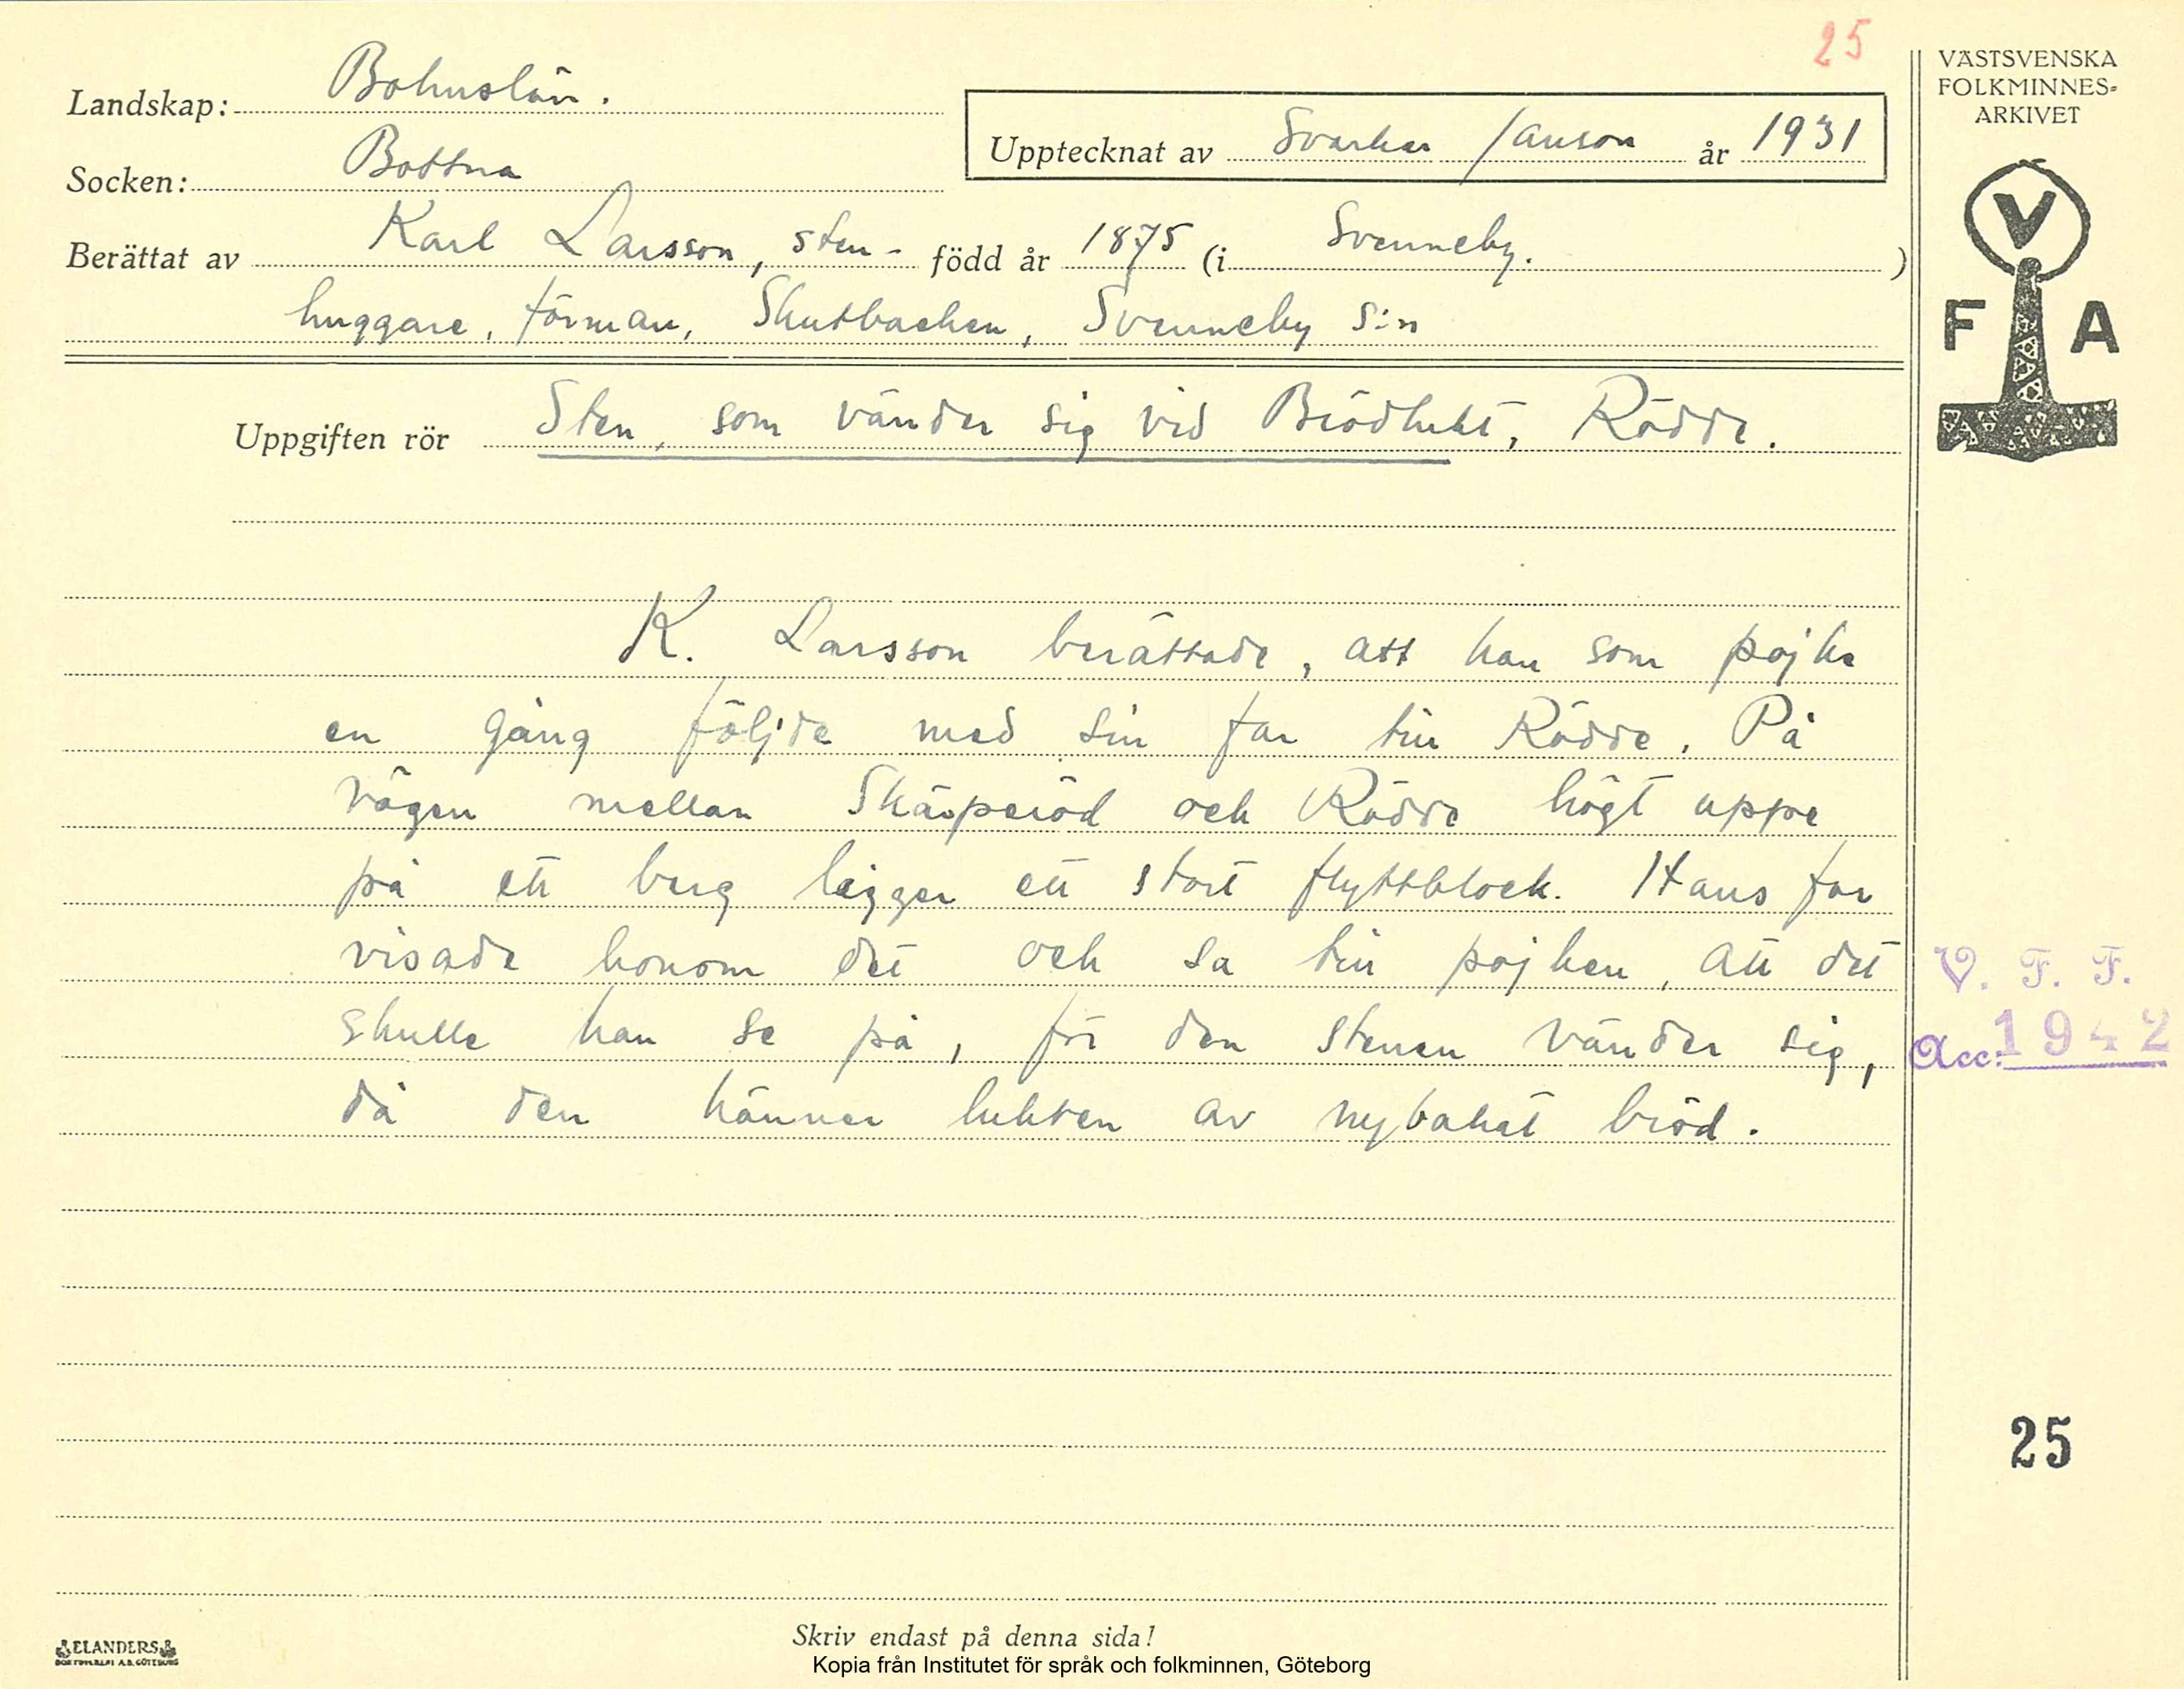 25
VÄSTSVENSKA
FOLKMINNES-
ARKIVET
V
F A
Landskap: Bohuslän.
Upptecknat av Sverker Janson år 1931
Socken: Bottna
Berättat av Karl Larsson, sten- född år 1875 (i Svenneby. )
huggare, förman, Skutbacken, Svenneby s:n
Uppgiften rör Sten, som vänder sig vid Brödlukt, Rödde.
K. Larsson berättade, att han som pojke
en gång följde med sin far till Rödde. På
vägen mellan Skäsperöd och Rödde högt uppe
på ett berg ligger ett stort flyttblock. Hans far
visade honom det och sa till pojken, att det
skulle han se på, för den stenen vänder sig,
då den känner lukten av nybakat bröd.
V. F. F.
Acc: 1942
25
ELANDERS
BOKTRYCKERI A.B. GÖTEBORG
Skriv endast på denna sida!
Kopia från Institutet för språk och folkminnen, Göteborg